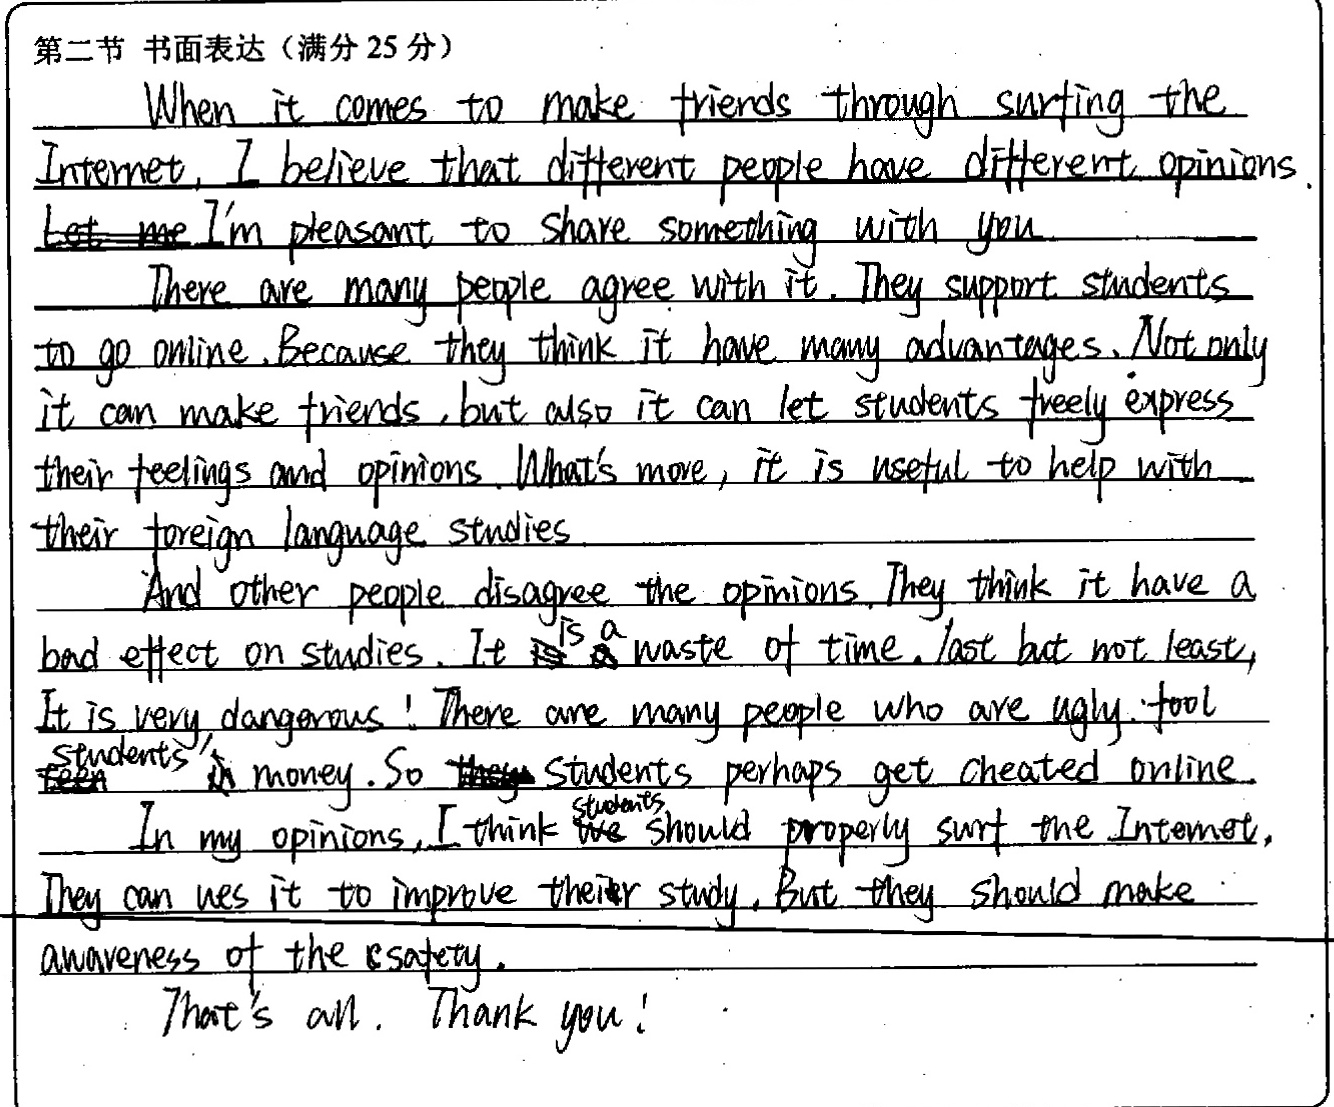 第二节 书面表达（满分 25 分）
When it comes to make friends through surfing the
Internet, I believe that different people have different opinions.
Let me I'm pleasant to share something with you
There are many people agree with it. They support students
to go online. Because they think it have many advantages. Not only
it can make friends, but also it can let students freely express
their feelings and opinions. What's more, it is useful to help with
their foreign language studies
And other people disagree the opinions. They think it have a
bad effect on studies. It is a waste of time. last but not least,
It is very dangerous! There are many people who are ugly. fool
students' money. So students perhaps get cheated online.
In my opinions, I think students should properly surf the Internet.
They can ues it to improve their study. But they should make
awareness of the safety.
That's all. Thank you!